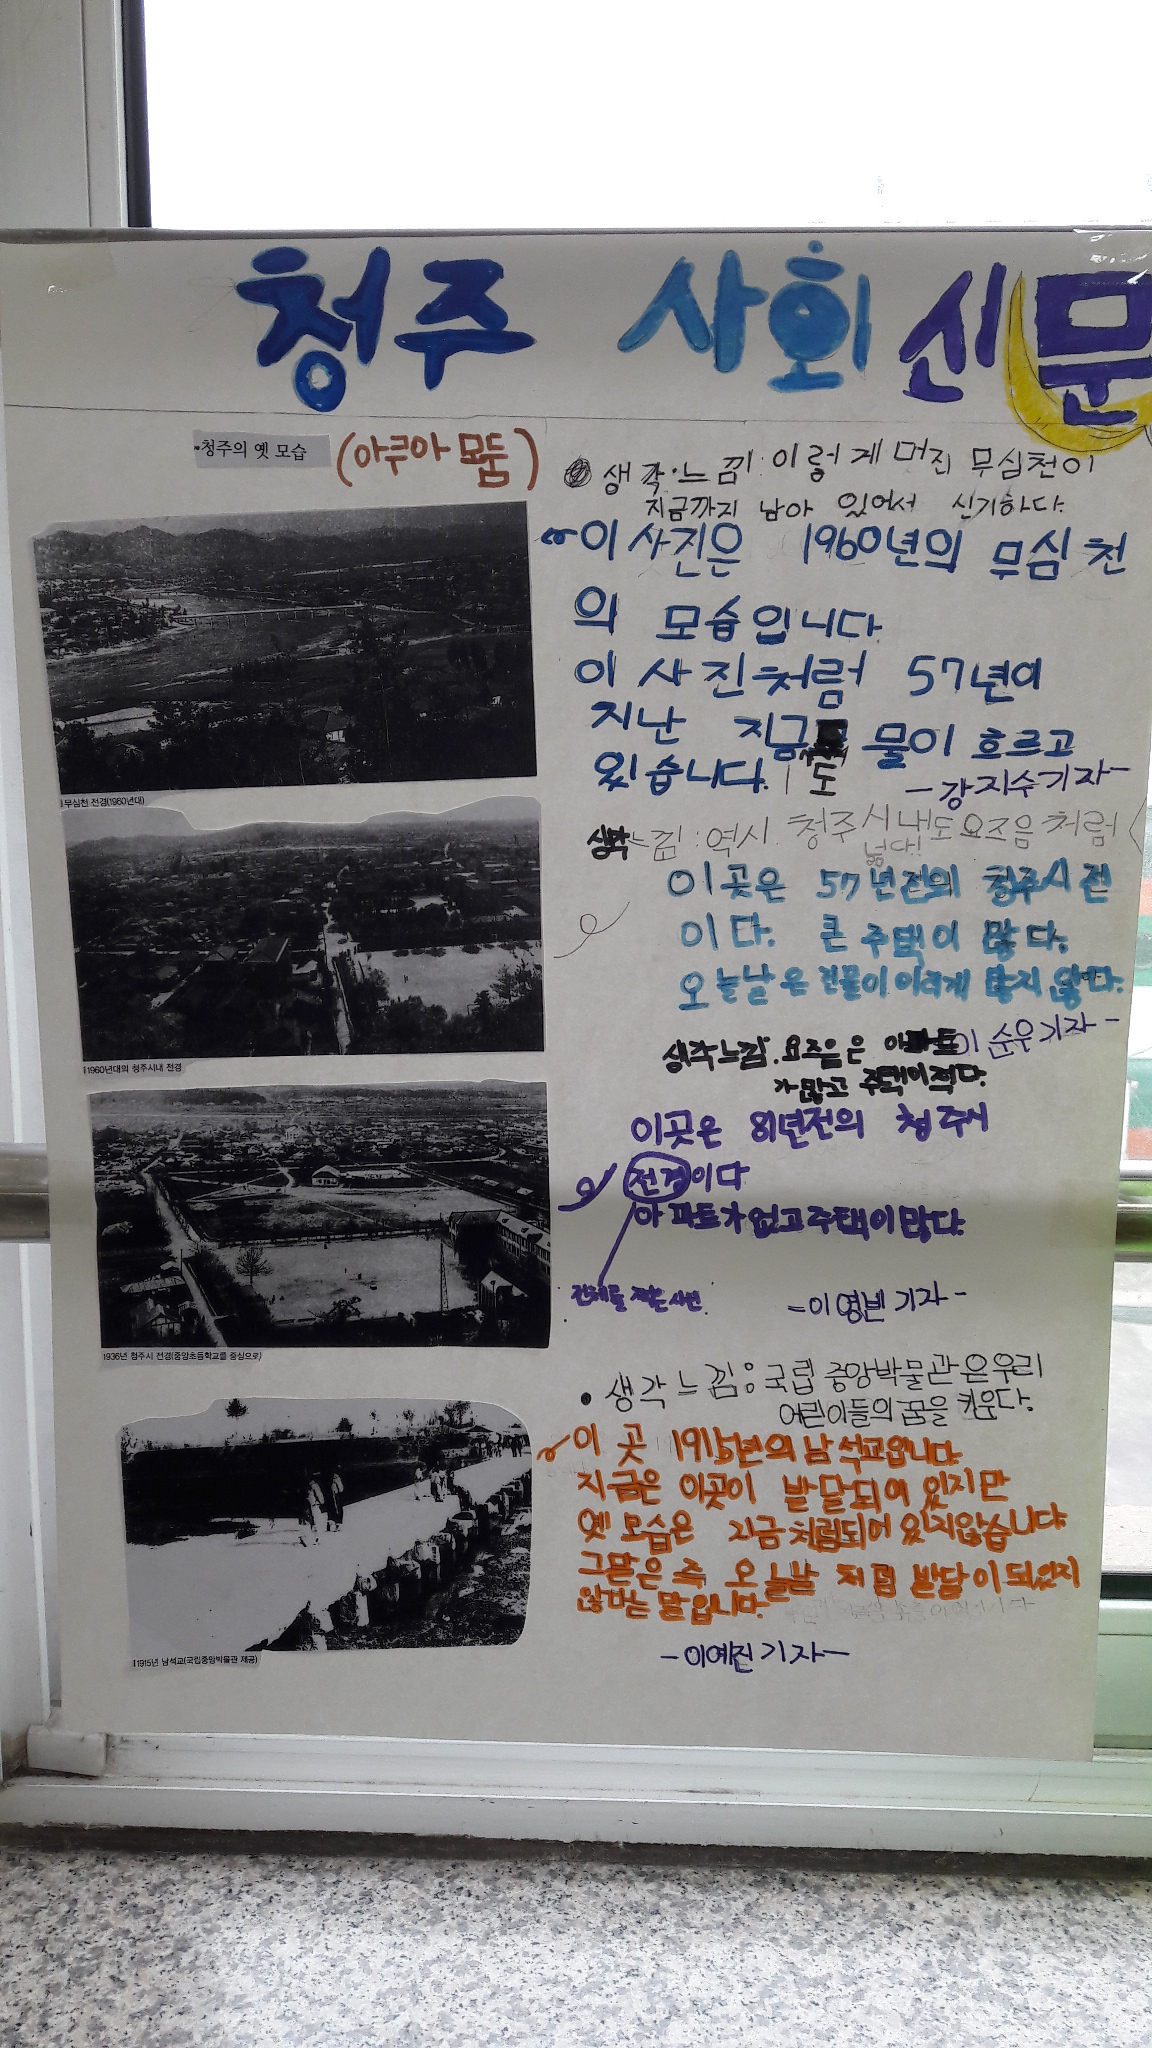 청주 사회 신문
청주의 옛 모습 (아쿠아 모둠)
생각·느낌: 이렇게 멋진 무심천이
지금까지 남아 있어서 신기하다.
이 사진은 1960년의 무심천
의 모습입니다.
이 사진처럼 57년이
지난 지금도 물이 흐르고
있습니다.
-강지수기자-
무심천 전경(1960년대)
생각느낌: 역시 청주시내도 요즈음처럼
넓다!
이곳은 57년전의 청주시전
이다. 큰 주택이 많다.
오늘날은 건물이 이러게 많지 않다.
이순우기자-
1960년대의 청주시내 전경
생각느낌. 요즈음은 아파트
가 많고 주택이 적다.
이곳은 81년전의 청주시
전경이다
아파트가 없고 주택이 많다.
전체를 찍은 사진
-이영빈 기자-
1936년 청주시 전경(중앙초등학교를 중심으로)
생각느낌: 국립중앙박물관은 우리
어린이들의 꿈을 키운다.
이 곳 1915년의 남석교입니다
지금은 이곳이 발달되어 있지만
옛 모습은 지금처럼되어 있지않습니다
그말은 즉 오늘날 처럼 발달이 되있지
않다는 말입니다.
-이예진기자-
1915년 남석교(국립중앙박물관 제공)